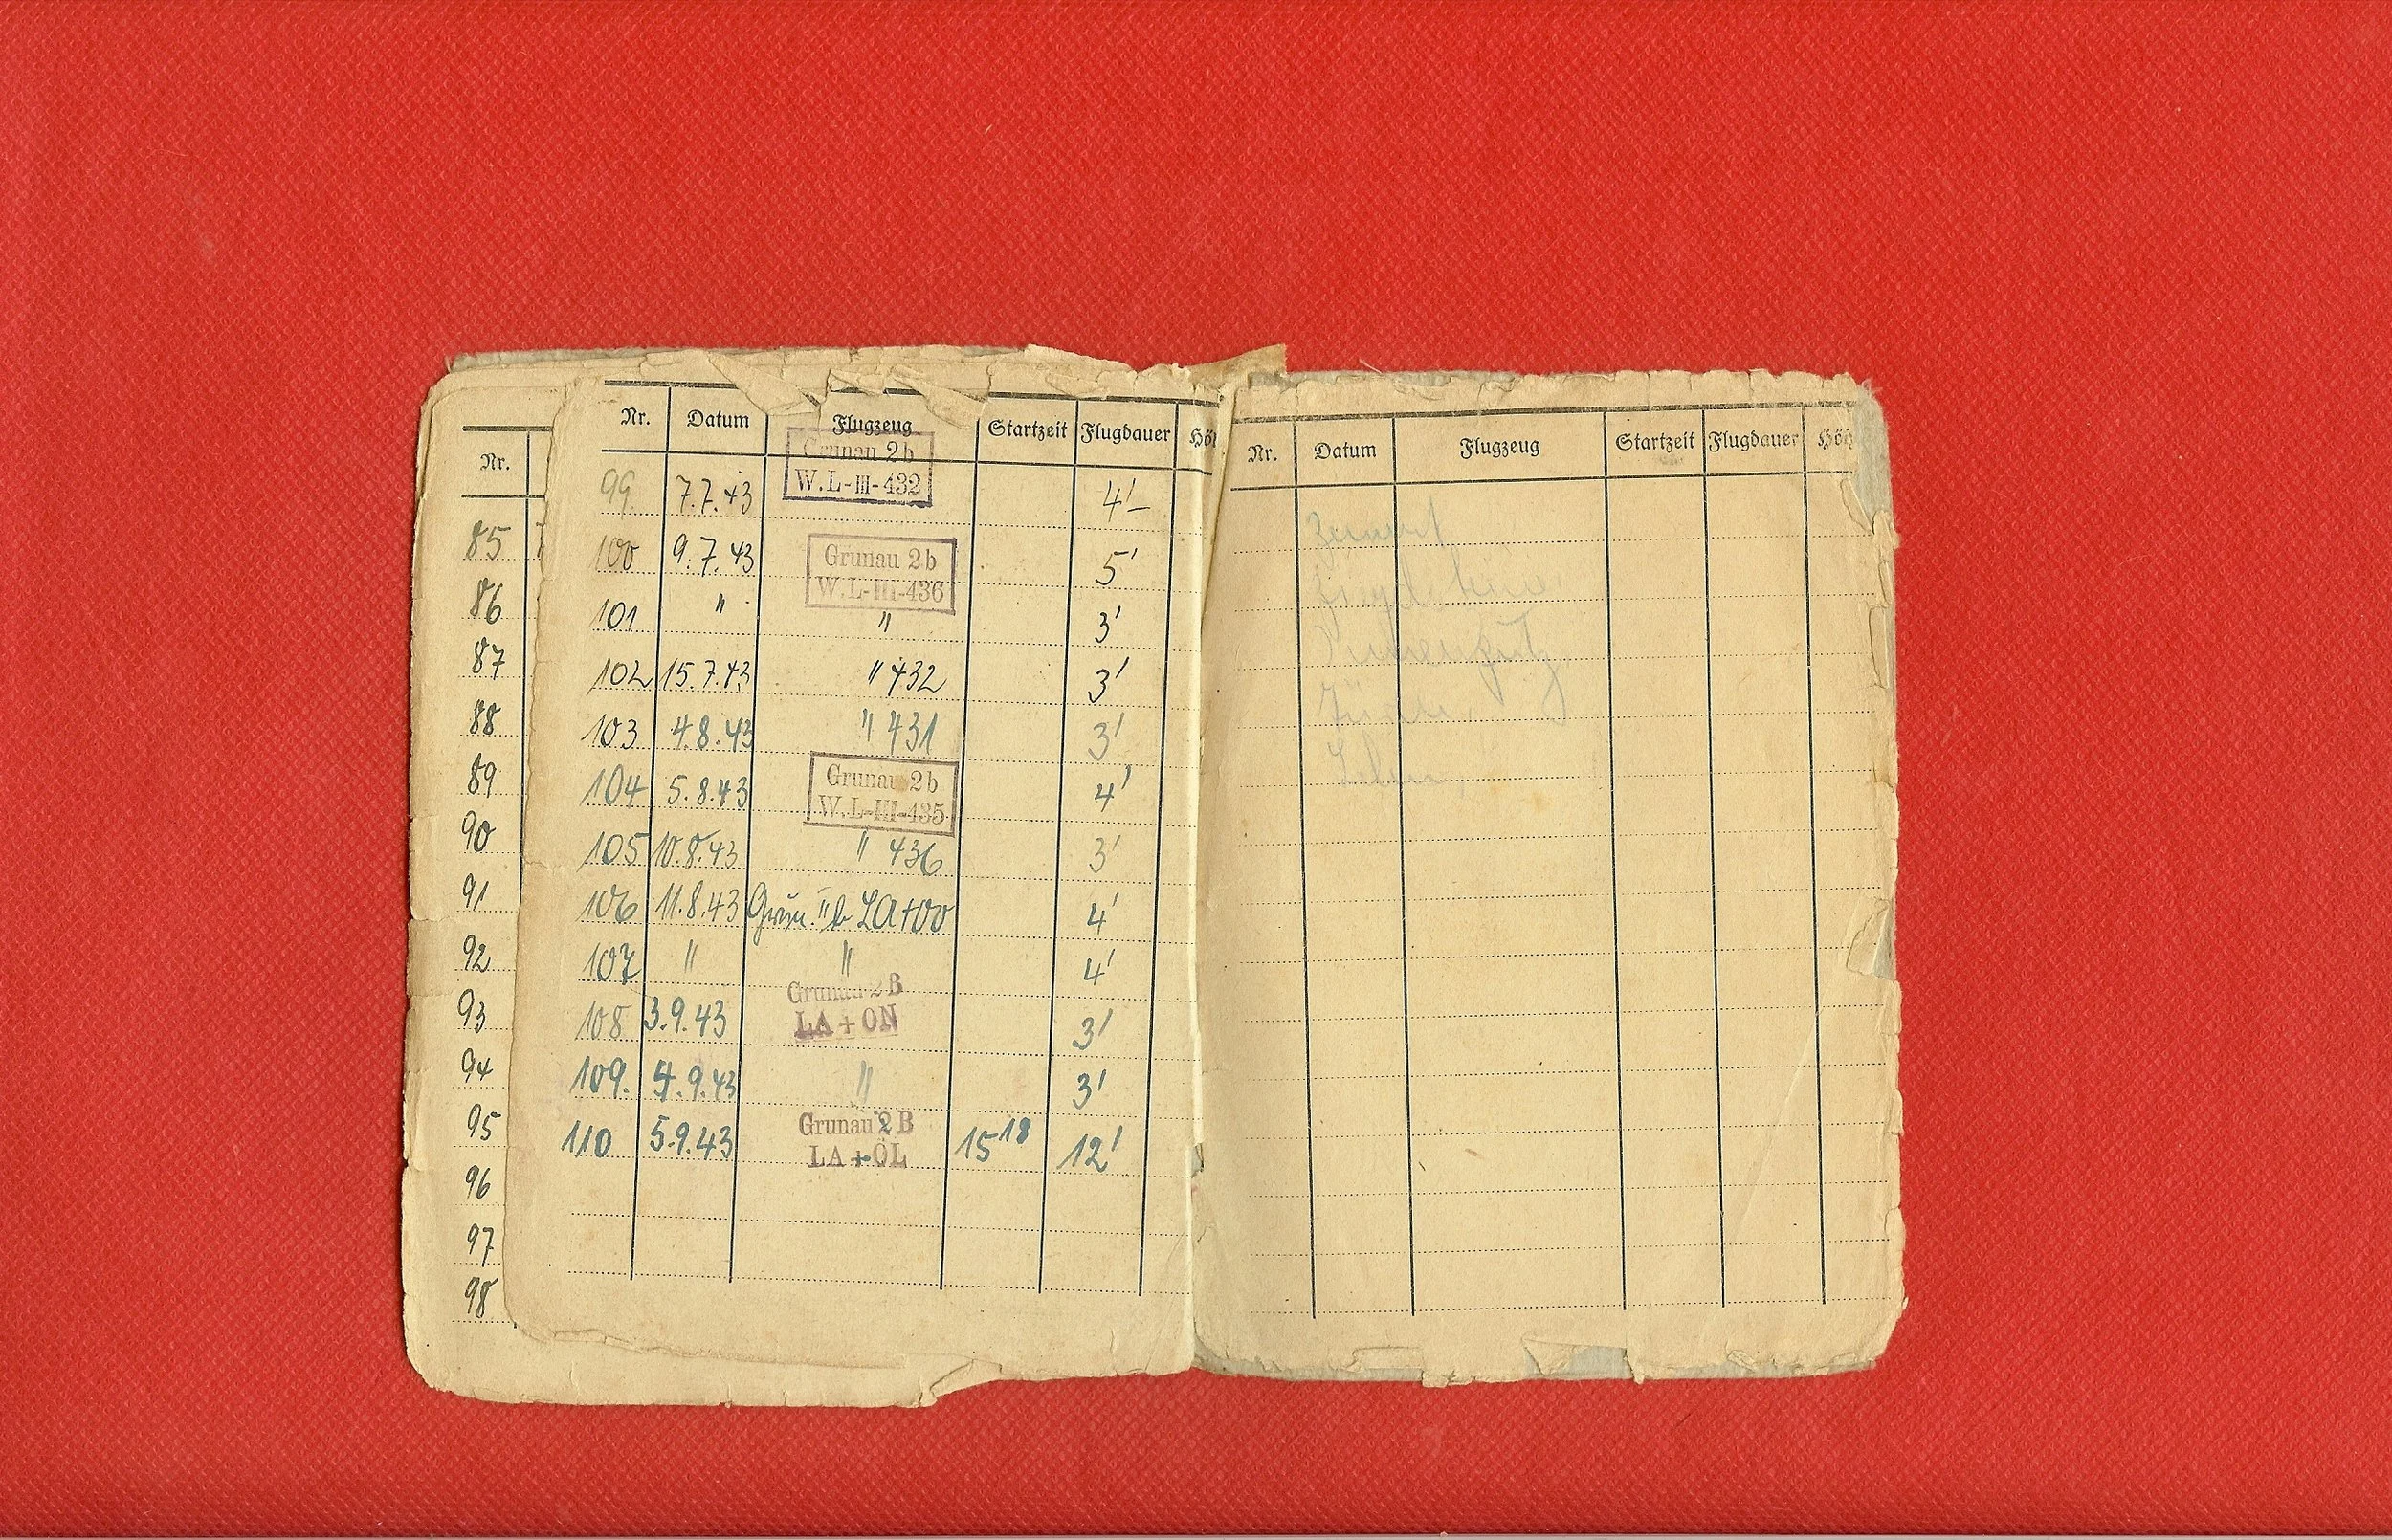 Nr.
85
86
87
88
89
90
91
92
93
94
95
96
97
98
Nr. Datum Flugzeug Startzeit Flugdauer Hö
99. 7.7.43 Grunau 2b 4'-
W.L-III-432
100 9.7.43 Grunau 2b 5'
W.L-III-436
101 " " 3'
102 15.7.43 " 432 3'
103 4.8.43 " 431 3'
104 5.8.43 Grunau 2b 4'
W.L-III-435
105 10.8.43 " 436 3'
106 11.8.43 Grun. IIb LA+OO 4'
107 " " 4'
108 3.9.43 Grunau 2B 3'
LA+ON
109. 4.9.43 " 3'
110 5.9.43 Grunau 2B 15 18 12'
LA+OL
Nr. Datum Flugzeug Startzeit Flugdauer Höh